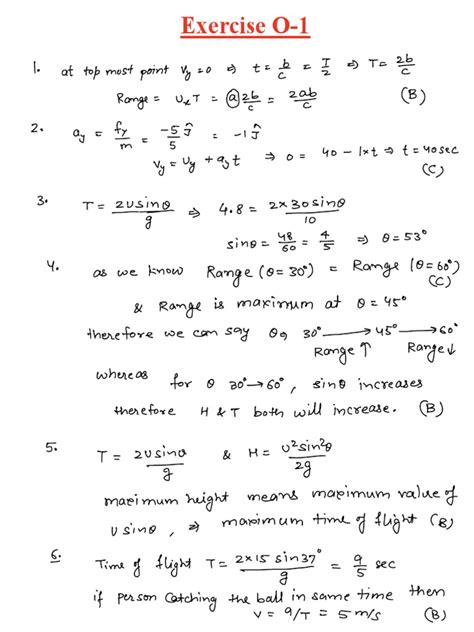 Exercise O-1
1. at top most point Vy = 0 ⇒ t = b/c = T/2 ⇒ T = 2b/c
Range = Ux T = a 2b/c = 2ab/c (B)
2. ay = fy/m = -5/5 ĵ = -1 ĵ
Vy = Uy + ay t ⇒ 0 = 40 - 1×t ⇒ t = 40sec
(C)
3. T = 2usinθ/g ⇒ 4.8 = 2×30sinθ/10
sinθ = 48/60 = 4/5 ⇒ θ = 53°
4. as we know Range (θ=30°) = Range (θ=60°)
(C)
& Range is maximum at θ = 45°
therefore we can say θ, 30° → 45° → 60°
Range ↑ Range ↓
whereas for θ 30° → 60°, sinθ increases
therefore H & T both will increase. (B)
5. T = 2usinθ/g & H = u²sin²θ/2g
maximum height means maximum value of
u sinθ, ⇒ maximum time of flight (B)
6. Time of flight T = 2×15 sin37°/g = 9/5 sec
if person catching the ball in same time then
V = 9/T = 5 m/s (B)